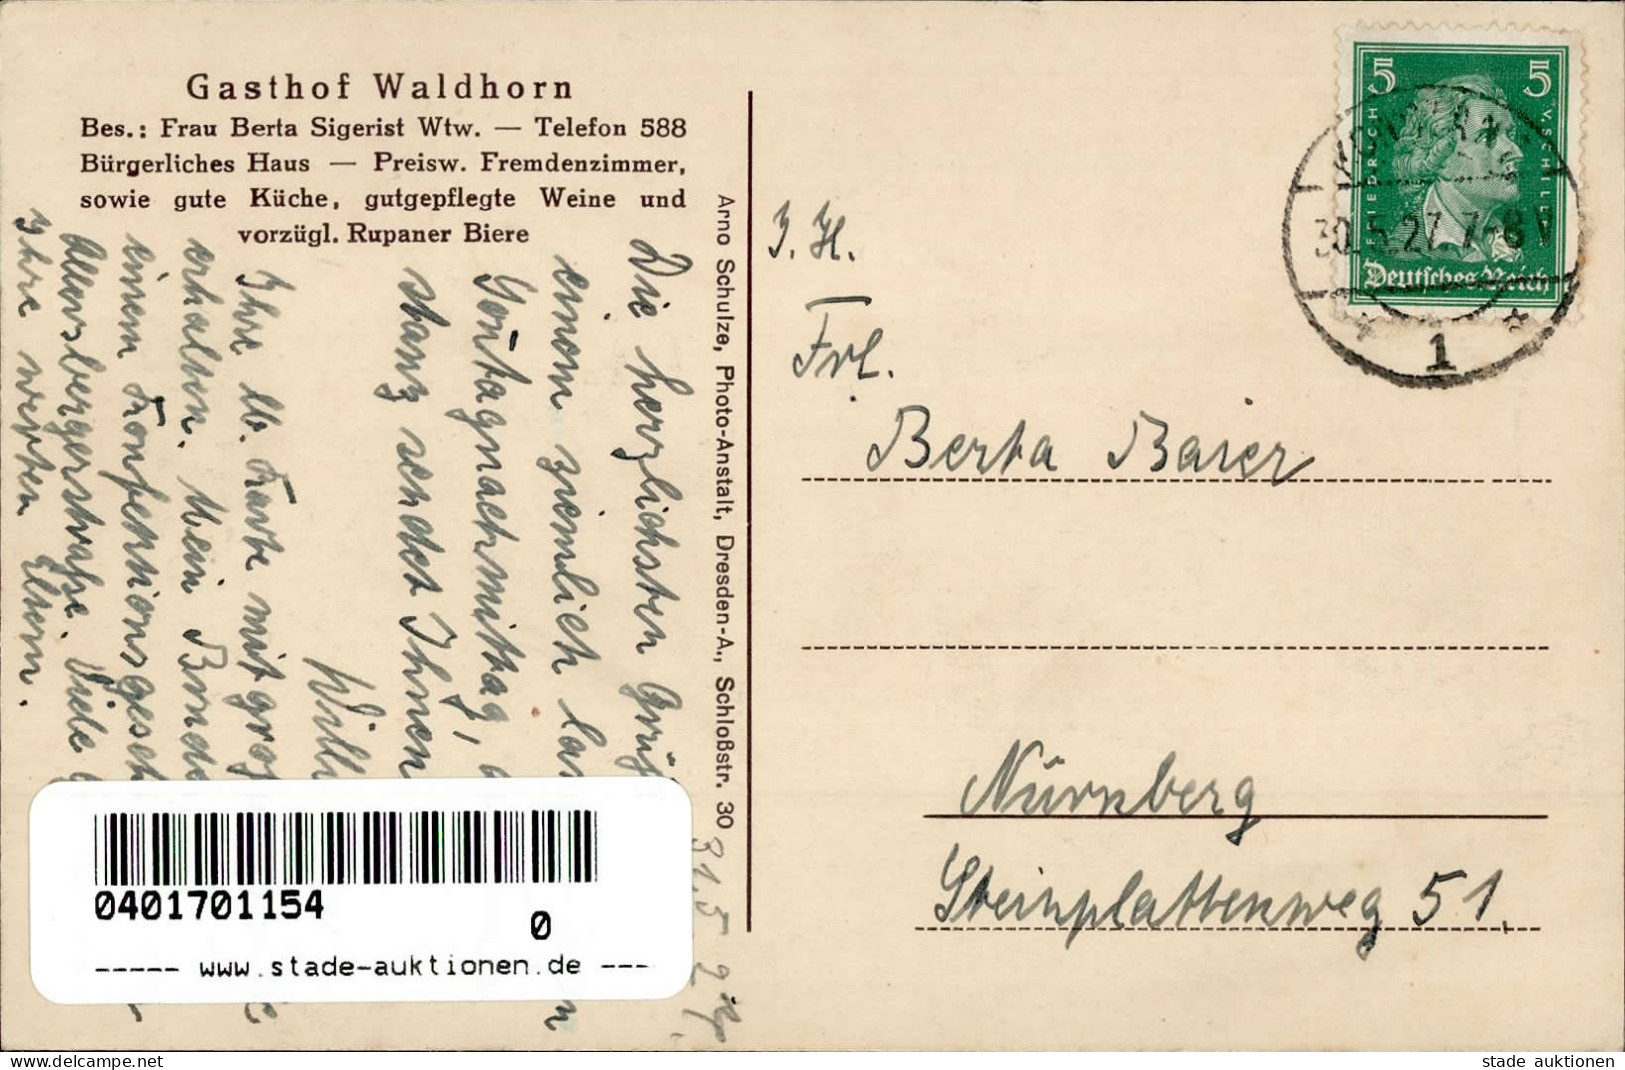 Gasthof Waldhorn
Bes.: Frau Berta Sigerist Wtw. — Telefon 588
Bürgerliches Haus — Preisw. Fremdenzimmer,
sowie gute Küche, gutgepflegte Weine und
vorzügl. Rupaner Biere
Die herzlichsten
einem ziemlich
Sontagnachmittag,
stanz sendet Ihnen
Ihre lb. Karte mit
erhalten. Mein
einem Konfektionsgesch
Allersbergerstraße. Viele
Ihre werten Eltern.
Arno Schulze, Photo-Anstalt, Dresden-A., Schloßstr. 30
31.5
5 5
FRIEDRICH V. SCHILLER
Deutsches Reich
30.5.27. 7-8 V
* 1 *
I. H.
Frl.
Berta Baier
Nürnberg
Steinplattenweg 51.
0401701154
0
----- www.stade-auktionen.de ---
www.delcampe.net
stade auktionen